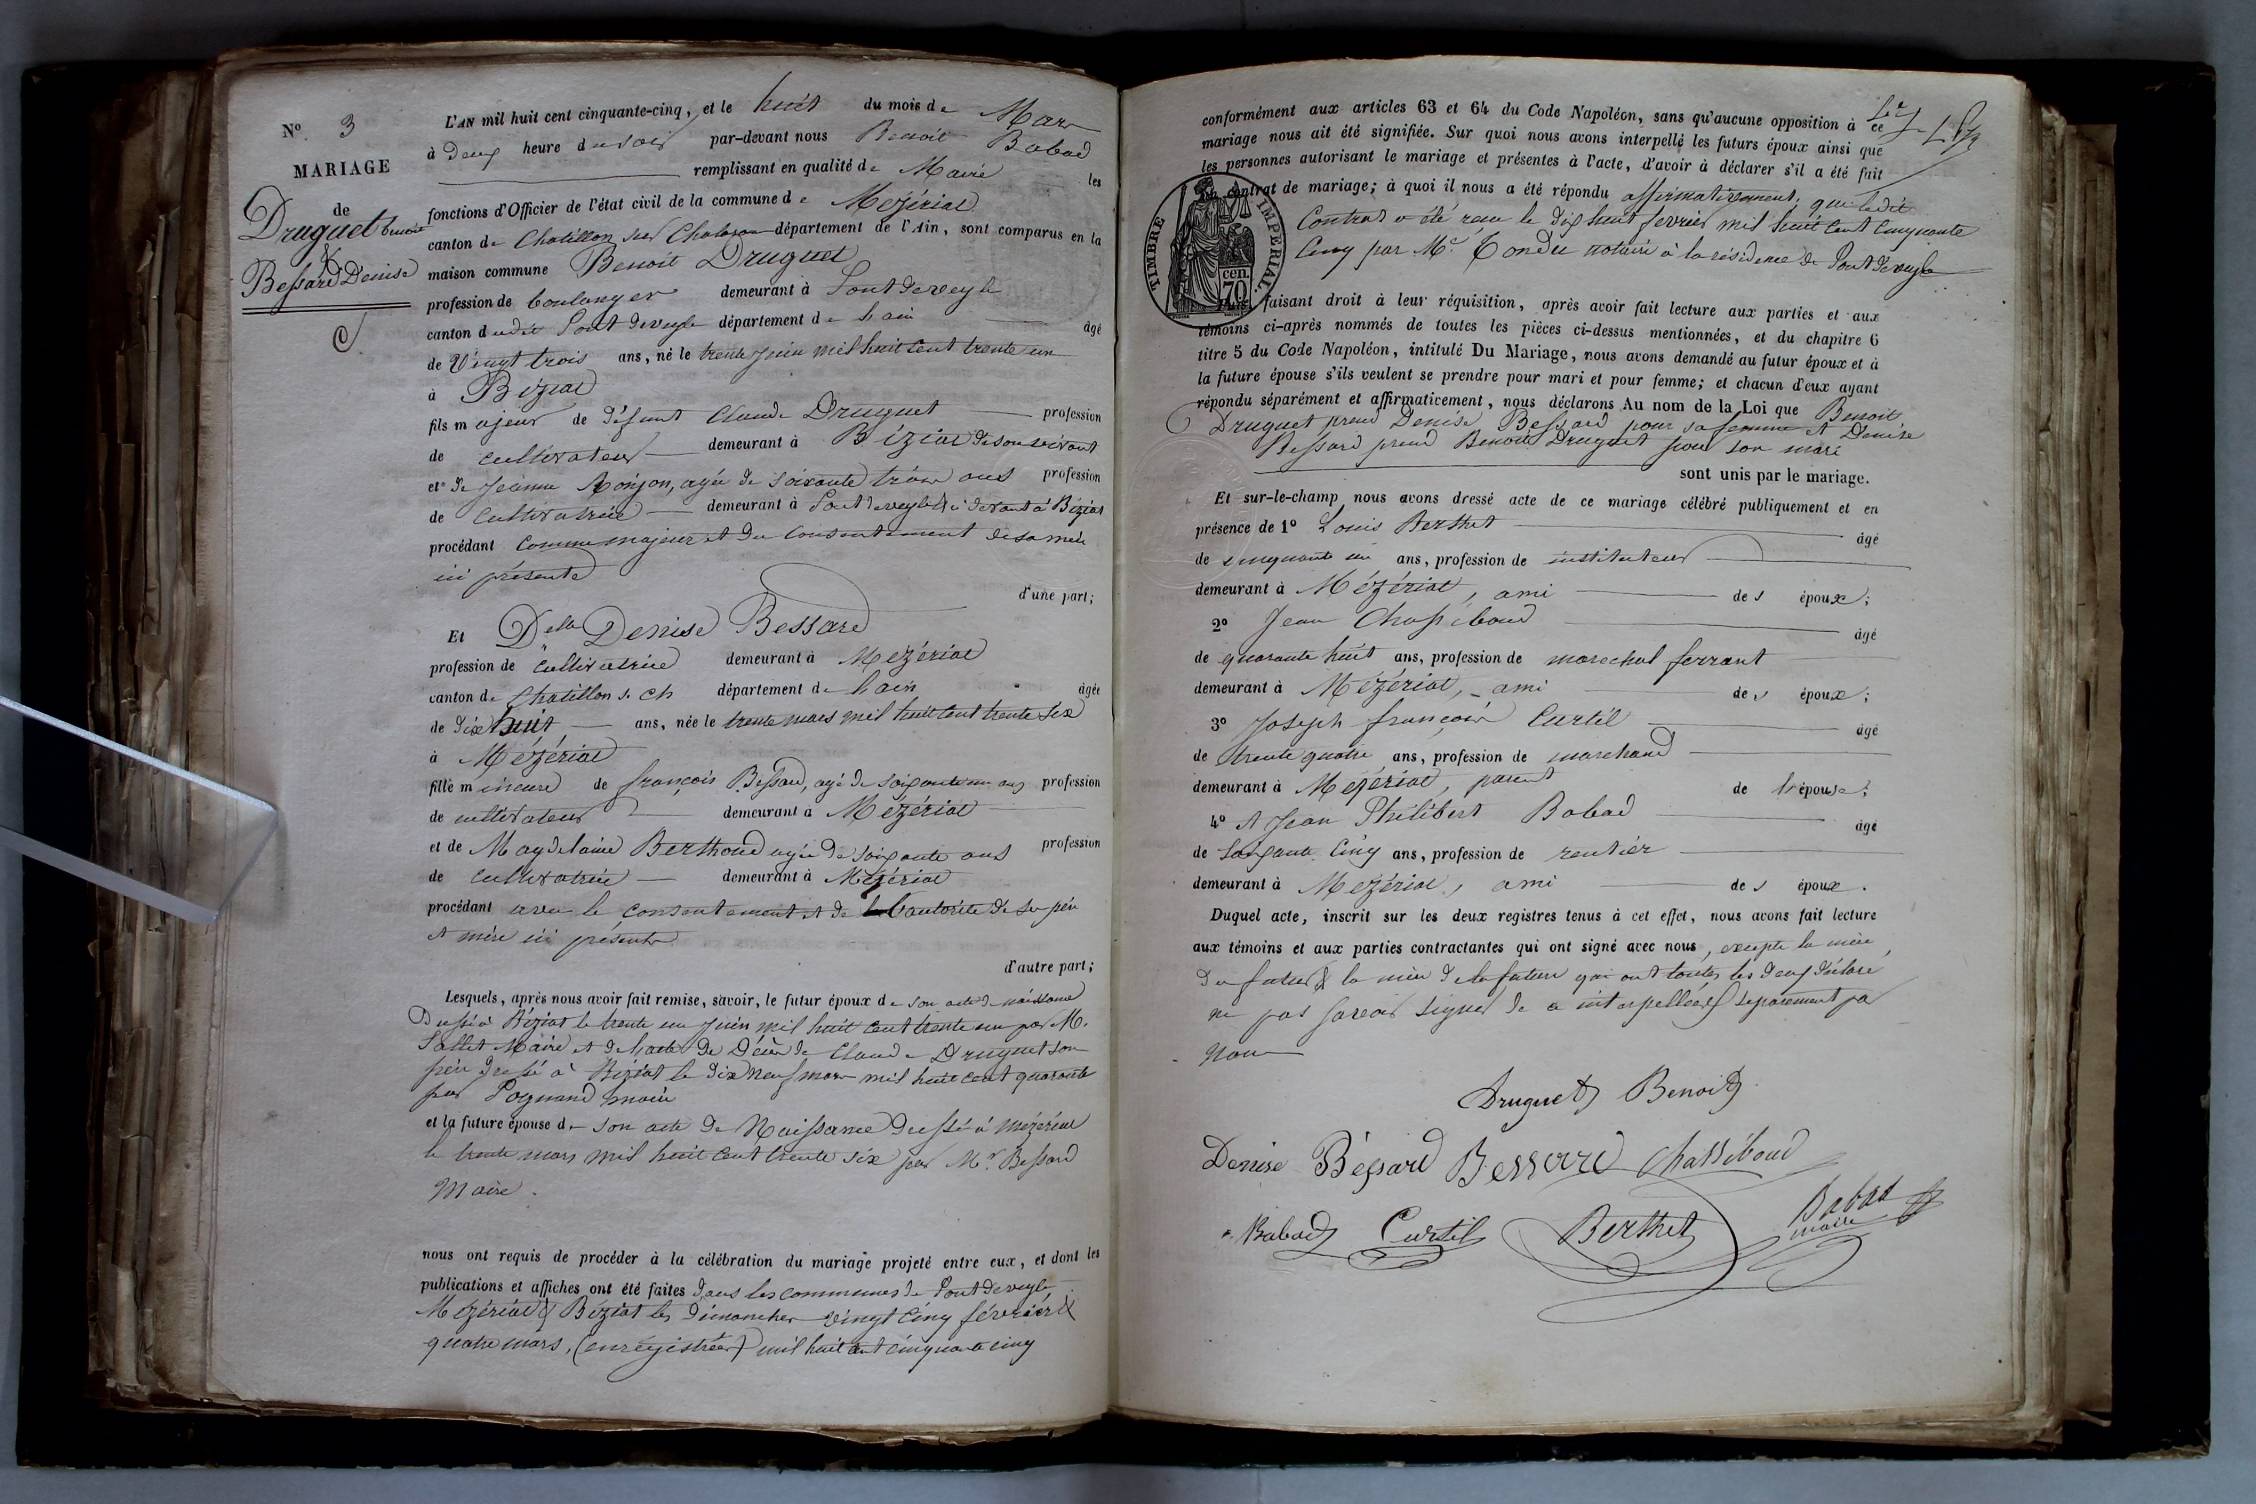 N° 3
MARIAGE
de
Druguet benoit
&
Bessard Denise
L'AN mil huit cent cinquante-cinq, et le huit du mois de Mars
à deux heure du soir par-devant nous Benoit Babad
remplissant en qualité de Maire les
fonctions d'Officier de l'état civil de la commune de Mézériat
canton de Chatillon sur Chalaronne département de l'Ain, sont comparus en la
maison commune Benoit Druguet
profession de boulanger demeurant à Pontdeveyle
canton dudit Pontdeveyle département de lain âgé
de vingt trois ans, né le trente juin mil huit cent trente un
à Béziat
fils majeur de défunt Claude Druguet profession
de cultivateur demeurant à Béziat de son vivant
et de Jeanne Monjon, agée de soixante trois ans profession
de cultivatrice demeurant à Pontdeveyle & devant à Béziat
procédant comme majeur et du consentement de sa mère
ici présente
d'une part;
Et Delle Denise Bessard
profession de cultivatrice demeurant à Mézériat
canton de Chatillon s. ch département de lain âgée
de dix huit ans, née le trente mars mil huit cent trente six
à Mézériat
fille mineure de françois Bessard, agé de soixante un ans profession
de cultivateur demeurant à Mézériat
et de Magdelaine Berthoud agée de soixante ans profession
de cultivatrice demeurant à Mézériat
procédant avec le consentement et de l'autorité de ses père
et mère ici présents
d'autre part;
Lesquels, après nous avoir fait remise, savoir, le futur époux de son acte de naissance
Dressé à Béziat le trente un juin mil huit cent trente un par M.
Sallet Maire et de l'acte de Décès de Claude Druguet son
père dressé à Béziat le dix neuf mars mil huit cent quarante
par Pognand maire
et la future épouse de son acte de Naissance dressé à mézériat
le trente mars mil huit cent trente six par Mr Bessard
Maire.
nous ont requis de procéder à la célébration du mariage projeté entre eux, et dont les
publications et affiches ont été faites dans les communes de Pontdeveyle,
Mézériat & Béziat les dimanches vingt cinq février &
quatre mars, (enregistrées) mil huit cent cinquante cinq
conformément aux articles 63 et 64 du Code Napoléon, sans qu'aucune opposition à ce
mariage nous ait été signifiée. Sur quoi nous avons interpellé les futurs époux ainsi que
les personnes autorisant le mariage et présentes à l'acte, d'avoir à déclarer s'il a été fait
un contrat de mariage; à quoi il nous a été répondu affirmativement, que ledit
contrat a été reçu le dix huit fevrier mil huit cent cinquante
cinq par Me Tondu notaire à la résidence de Pontdeveyle
TIMBRE IMPERIAL.
70 cen.
Puis, faisant droit à leur réquisition, après avoir fait lecture aux parties et aux
témoins ci-après nommés de toutes les pièces ci-dessus mentionnées, et du chapitre 6
titre 5 du Code Napoléon, intitulé Du Mariage, nous avons demandé au futur époux et à
la future épouse s'ils veulent se prendre pour mari et pour femme; et chacun d'eux ayant
répondu séparément et affirmativement, nous déclarons Au nom de la Loi que Benoit
Druguet prend Denise Bessard pour sa femme et Denise
Bessard prend Benoit Druguet pour son mari
sont unis par le mariage.
Et sur-le-champ nous avons dressé acte de ce mariage célébré publiquement et en
présence de 1° Louis Berthet âgé
de cinquante un ans, profession de instituteur
demeurant à Mézériat, ami des époux;
2° Jean Chassiboud âgé
de quarante huit ans, profession de marechal ferrant
demeurant à Mézériat, ami des époux;
3° Joseph françois Curtil âgé
de trente quatre ans, profession de marchand
demeurant à Mézériat, parent de l'épouse;
4° et Jean Philibert Babad âgé
de soixante cinq ans, profession de rentier
demeurant à Mézériat, ami des époux.
Duquel acte, inscrit sur les deux registres tenus à cet effet, nous avons fait lecture
aux témoins et aux parties contractantes qui ont signé avec nous, excepte la mère
du futur & la mère de la future qui ont toutes les deux déclaré
ne pas savoir signer de ce interpellées séparement par
nous
Druguet Benoit
Denise Béssard Bessard Chassiboud
Babad Curtil Berthet Babad
maire